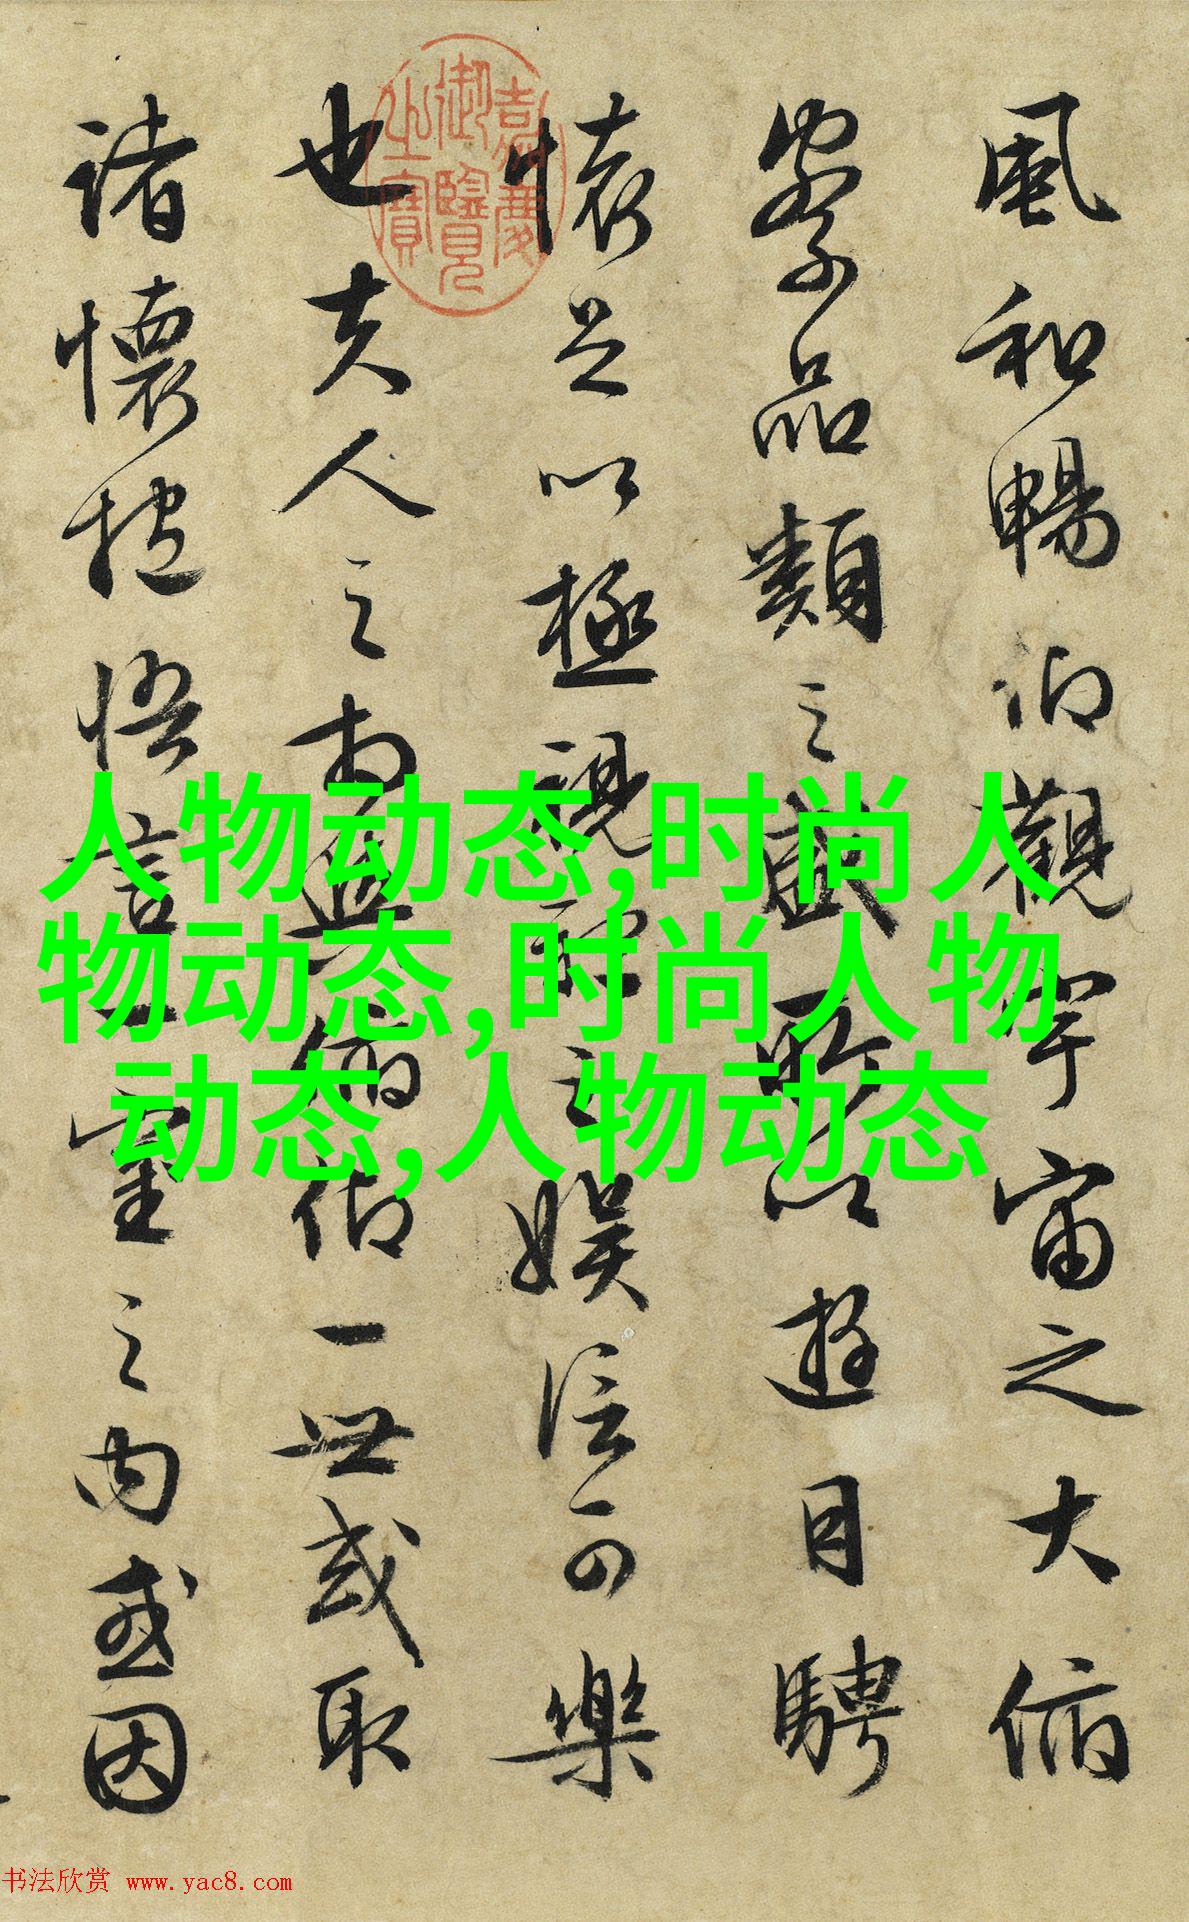 風和暢仰觀宇宙之大俯
察品類之盛所以遊目騁
懷足以極視聽之娛信可樂
也夫人之相與俯仰一世或取
諸懷抱悟言一室之內或因
嘉慶
御覽
之寶
人物动态,时尚人
物动态,时尚人物
动态,人物动态
书法欣赏 www.yac8.com